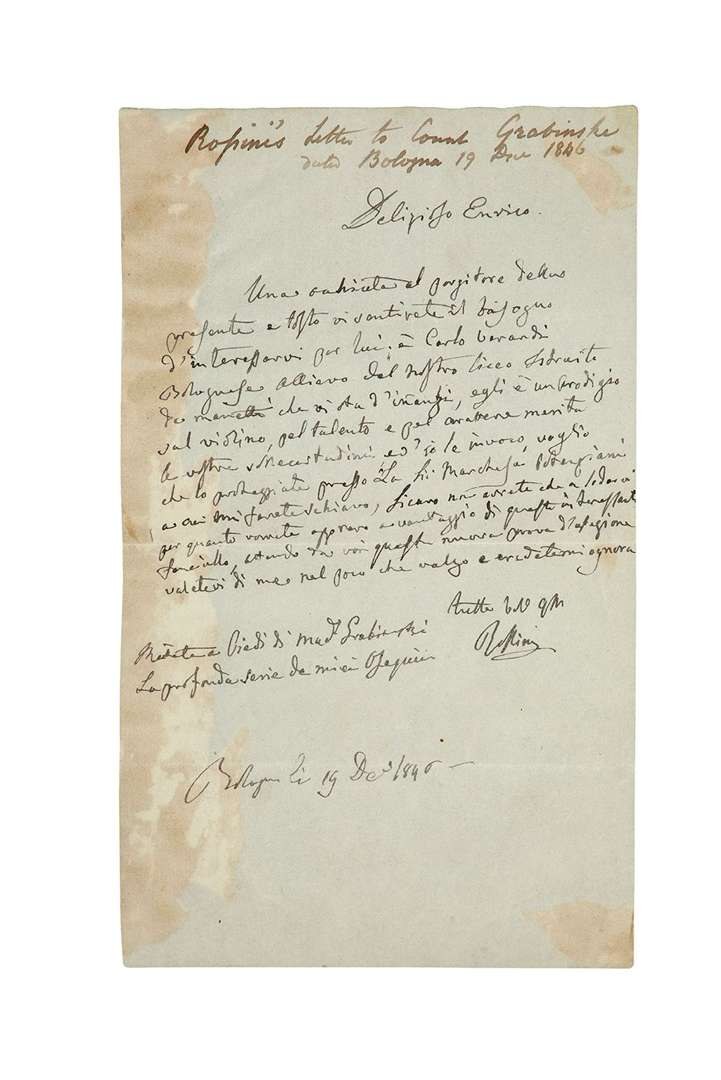 Rossini's Letter to Count Grabinski
dated Bologna 19 Dec 1846
Delizioso Enrico.
Una occhiata al porgitore della
presente e tosto vi sentirete il bisogno
d'interessarvi per lui; è Carlo Verardi
Bolognese allievo del nostro Liceo
che vi sta d'innanzi, egli è un Prodigio
sul violino, pel talento e pel carattere merita
le vostre sollecitudini ed io le invoco, voglio
che lo proteggiate presso La Marchesa Potenziani
a cui mi farete schiavo, sicuro non avrete che a lodarvi
per quanto vorrete oprare a vantaggio di questo interessante
fanciullo, attendo da voi questa nuova prova d'affezione
valetevi di me nel poco che valgo e credetemi ognora
tutto
Rossini
Piedi di Mad. Grabinski
La profonda serie de miei Ossequi
Bologna li 19 Dec. 1846